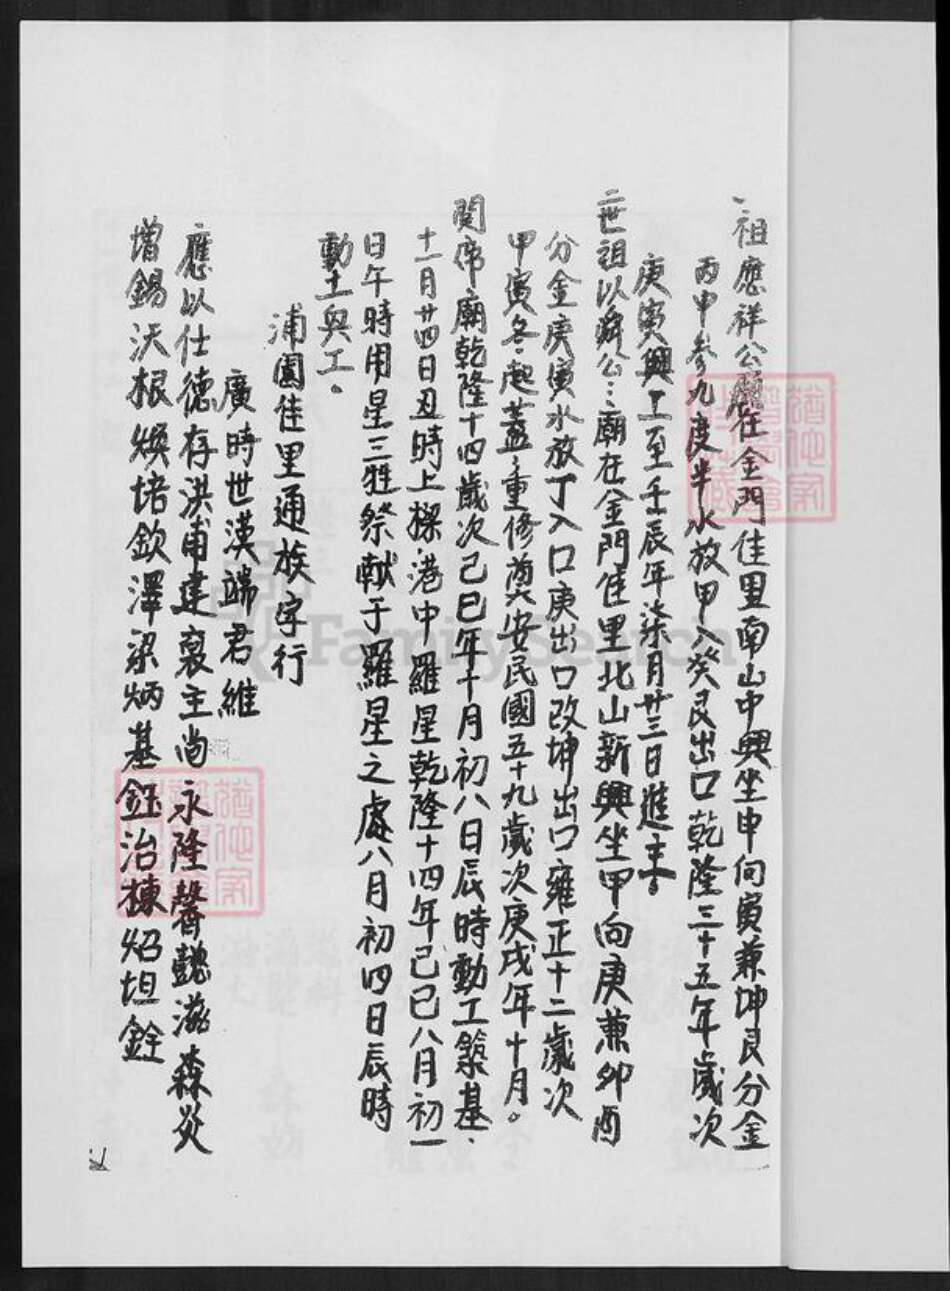 祖應祥公在金門佳里南山中興坐申向寅兼坤艮分金
丙申參九度半水放甲入癸艮出口乾隆三十五年歲次
庚寅興工至壬辰年柒月廿三日進主。
二世祖以舜公:廟在金門佳里北山新興坐甲向庚兼卯酉
分金庚寅水放丁入口庚出口改坤出口雍正十二歲次
甲寅冬.起蓋.重修奠安民國五十九歲次庚戌年十月。
関帝廟乾隆十四歲次己巳年十月初八日辰時動工築基.
十一月廿四日丑時上樑.港中羅星乾隆十四年己巳八月初一
日午時用星三牲祭献于羅星之處八月初四日辰時
動土與工。
浦園佳里通族字行
廣時世漢端君維
應以仕德存洪甫建裒主尚永隆馨懿滋森炎
增錫沃根煥培欽澤梁炳基鈺治棟炤坦銓
FamilySearch